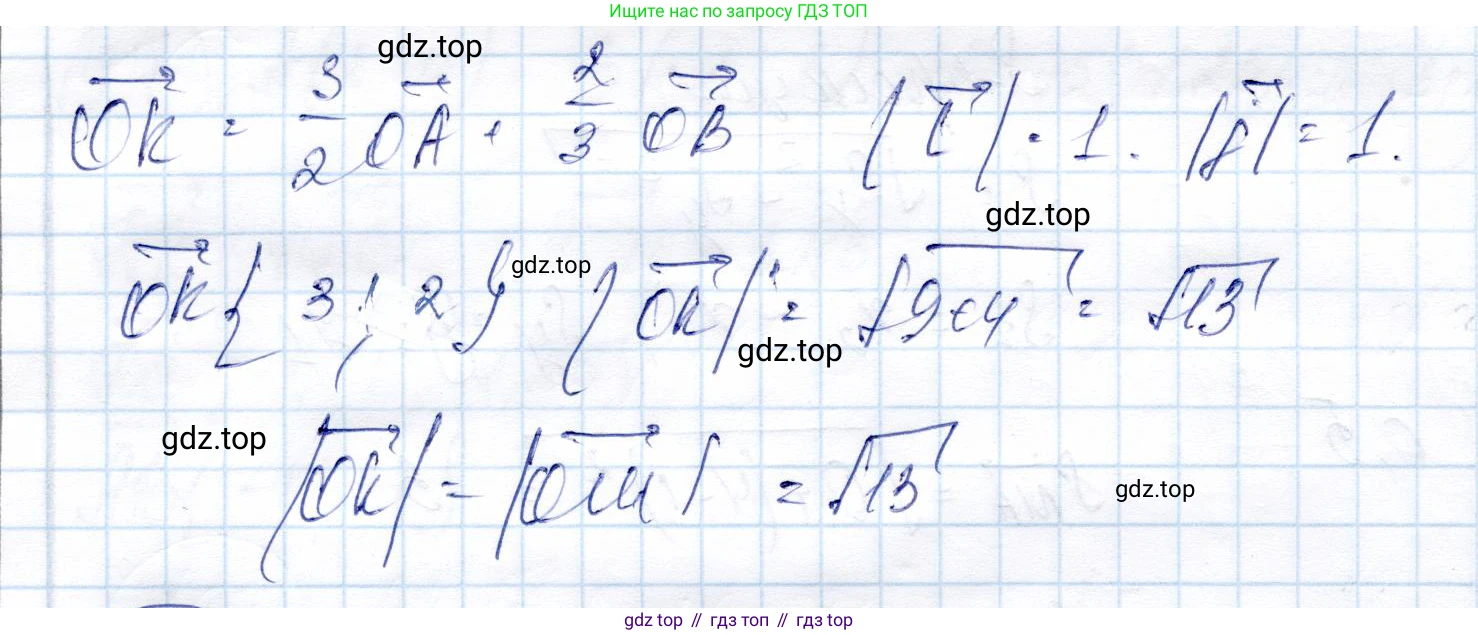 Ищите нас по запросу ГДЗ ТОП
gdz.top
OK = 3/2 OA + 2/3 OB |i| = 1. |j| = 1.
gdz.top
OK { 3 ; 2 } |OK| = √9+4 = √13
gdz.top
gdz.top
gdz.top
|OK| = |OM| = √13
gdz.top
gdz.top // гдз топ // гдз top